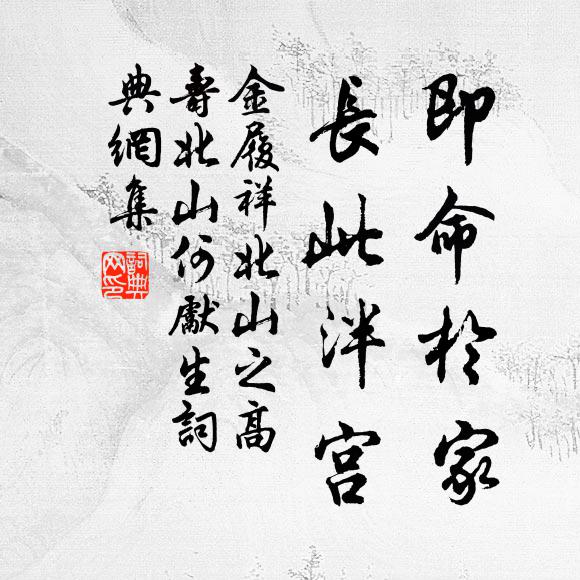 即命於家
長此泮宮
金履祥北山之高
壽北山何獻生詞
典網集
詞典網印